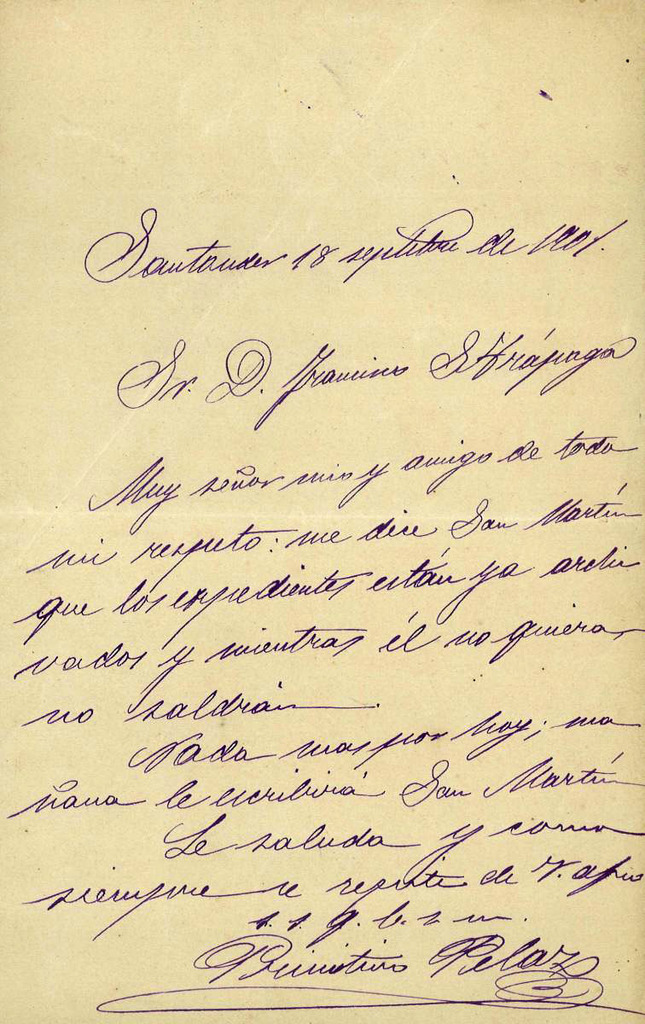 Santander 18 septbre de 1901.
Sr. D. S. Arápaga
Muy señor mio y amigo de todo
mi respeto: me dice San Martín
que los expedientes están ya archi
vados y mientras él no quiera,
no saldrán.
Nada mas por hoy; ma
ñana le escribirá San Martín
Le saluda y como
siempre se repite de V. afmo
s. s. q. b. s. m.
Primitivo Pelaz